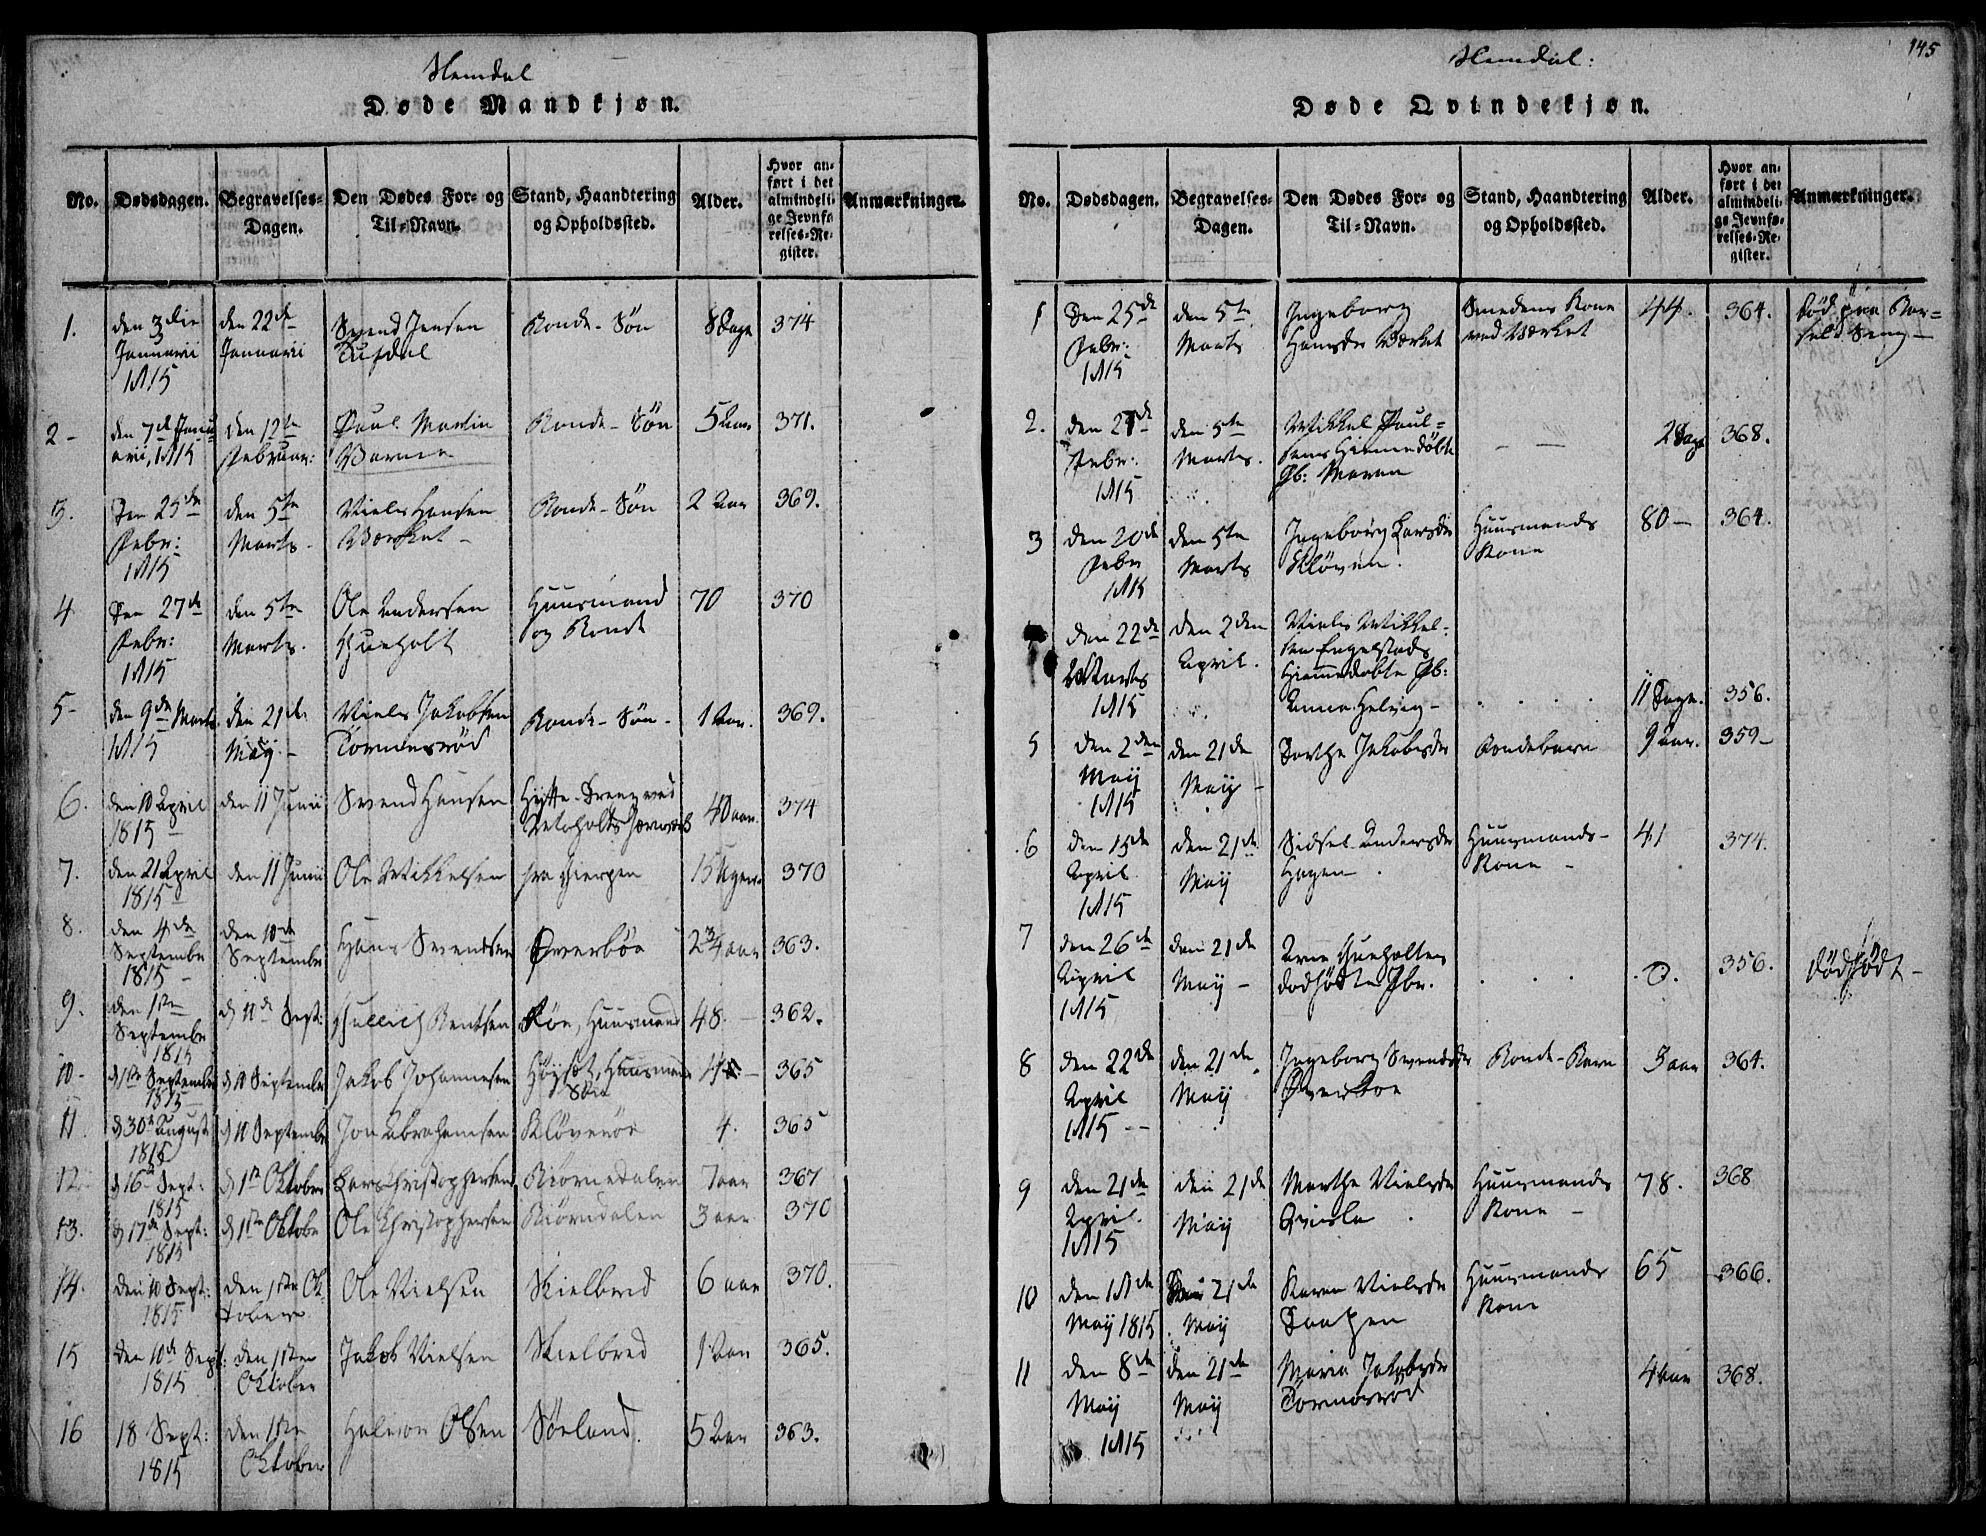 Slemdal
Døde Mandkjøn.
No.
Dødsdagen.
Begravelses-
Dagen.
Den Dødes For- og
Til-Navn.
Stand, Haandtering
og Opholdssted.
Alder.
Hvor an-
ført i det
almindeli-
ge Jevnfø
relses-Re-
gister.
Anmærkninger.
1.
den 3die
Januarii
1815
den 22de
Januarii
Svend Jensen
Bonde-Søn
8 Dage
374
2-
den 7de Janu-
arii, 1815
den 12te
Februar:
Poul Martin
Bonde-Søn
5 Aar
371.
3.
Den 25de
Febr:
1815
den 5te
Marts.
Niels Hansen
Værket-
Bonde-Søn
2 Aar
369.
4
Den 27de
Febr:
1815
den 5te
Marts.
Ole Andersen
Gunholt
Huusmand
og Bonde
70
370
5-
den 9de Marts
1815
den 21de
Maÿ-
Niels Jakobsen
Tormersrød
Bonde-Søn-
1 Aar.
369.
6.
den 10 April
1815
den 11 Junii
Svend Hansen
Hytte-Dreng ved
40 aar.
374
7.
den 21 April
1815
den 11 Junii
Ole Mikkelsen
15 Uger.
370
8.
den 4de
Septembr
1815
den 10de
Septembr
Hans Svendsen
Øverbøe
2 3/4 aar
363.
9.
den 1ste
Septembr
1815
d 10de Sept:
Gullich Bentsen
Bøe, Huusmand
48.
362.
10-
d 1ste September
1815
d 10 September
Jakob Johannesen
Høyset, Huusmands
Søn
365
11.
d 30te August
1815
d 10 Septembr
Jon Abrahamsen
Kløveröe
4.
365
12.
d 16de Sept:
1815
d 1ste Oktober
Lars Christophersen
Biørnedalen
7 aar
367
13.
d 17de Sept:
1815
d 1ste Oktobr
Ole Christophersen
Biørndalen
3 aar
370
14.
den 10 Sept:
1815
den 1ste Ok-
tober
Ole Nielsen
Skielbred
6 aar
370.
15
den 10de Sept:
1815
den 1ste
Oktober
Jakob Nielsen
Skielbred
1 Aar
365.
16
18 Sept:
1815
den 1ste
Oktober
Halvor Olsen
Sørland.
5 Aar
363.
145
Slemdal:
Døde Qvindekjøn.
No.
Dødsdagen.
Begravelses-
Dagen.
Den Dødes For- og
Til-Navn.
Stand, Haandtering
og Opholdssted.
Alder.
Hvor an-
ført i det
almindeli-
ge Jevnfø-
relses-Re-
gister.
Anmærkninger.
1
Den 25de
Febr:
1815
den 5te
Marts
Ingeborg
Hansdr Værket
Smedens Kone
ved Værket
44.
364.
død paa Bar-
sels Seng-
2.
den 27de
Febr:
1815
den 5te
Marts.
Mikkel Poul-
sens Hiemmedøbte
Pb: Maren
2 Dage
368.
3
den 20de
Febr
1815
den 5te
Marts
Ingeborg Larsdr
Kløveröe.
Huusmands
Kone
80-
364.
den 22de
Marts
1815
den 2den
April.
Niels Mikkel-
sen Engelstads
Hiemmedøbte Pb:
Anna Helvig-
11 Dage.
356.
5
den 2den
Maÿ
1815
den 21de
Maÿ-
Dorthe Jakobsdr
Bondebarn
9 aar.
359-
6
den 15de
April
1815
den 21de
Maÿ
Sidsel Andersdr
Hagen.
Huusmands-
Kone-
41
374.
7
den 26de
April
1815
den 21de
Maÿ-
Arne Gunholtes
dødfødte Pbr.
0.
356.
dødfødt-
8
den 22de
April
1815--
den 21de
Maÿ
Ingeborg Svendsdr
Øverbøe
Bonde-Barn
3 aar
364.
9
den 21de
April.
1815
den 21de
Maÿ
Marthe Nielsdr
Qvisla.
Huusmands
Kone-
78.
368
10
den 18de
Maÿ 1815
21de
Maÿ
Karen Nielsdr
Huusmands
Kone
65
366.
11
den 8de
Maÿ
1815
den 21de
Maÿ
Maria Jakobsdr
Tormersrød
4 aar
368.